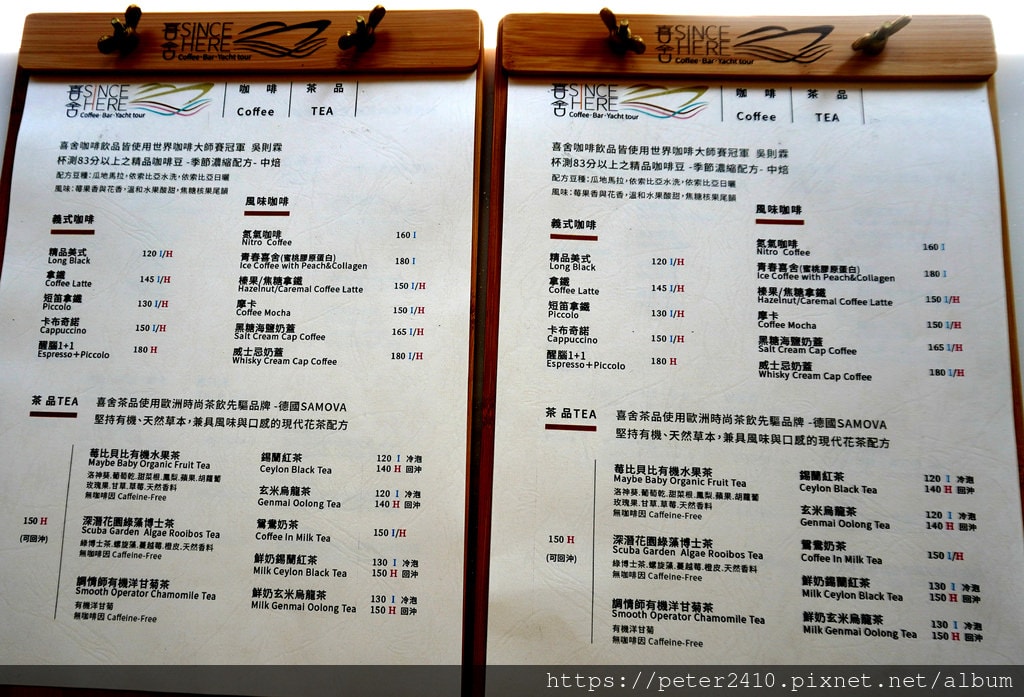 喜舍 SINCE HERE
Coffee·Bar·Yacht tour
喜舍 SINCE HERE
Coffee·Bar·Yacht tour
咖啡 Coffee
茶品 TEA
喜舍咖啡飲品皆使用世界咖啡大師賽冠軍 吳則霖
杯測83分以上之精品咖啡豆 -季節濃縮配方- 中焙
配方豆種:瓜地馬拉,依索比亞水洗,依索比亞日曬
風味:莓果香與花香,溫和水果酸甜,焦糖核果尾韻
義式咖啡
精品美式 120 I/H
Long Black
拿鐵 145 I/H
Coffee Latte
短笛拿鐵 130 I/H
Piccolo
卡布奇諾 150 I/H
Cappuccino
醒腦1+1 180 H
Espresso+Piccolo
風味咖啡
氮氣咖啡 160 I
Nitro Coffee
青春喜舍(蜜桃膠原蛋白) 180 I
Ice Coffee with Peach&Collagen
榛果/焦糖拿鐵 150 I/H
Hazelnut/Caremal Coffee Latte
摩卡 150 I/H
Coffee Mocha
黑糖海鹽奶蓋 165 I/H
Salt Cream Cap Coffee
威士忌奶蓋 180 I/H
Whisky Cream Cap Coffee
茶品TEA
喜舍茶品使用歐洲時尚茶飲先驅品牌 -德國SAMOVA
堅持有機、天然草本,兼具風味與口感的現代花茶配方
150 H
(可回沖)
莓比貝比有機水果茶
Maybe Baby Organic Fruit Tea
洛神葵.葡萄乾.甜菜根.鳳梨.蘋果.胡蘿蔔
玫瑰果.甘草.草莓.天然香料
無咖啡因 Caffeine-Free
深潛花園綠藻博士茶
Scuba Garden Algae Rooibos Tea
綠博士茶.螺旋藻.蔓越莓.橙皮.天然香料
無咖啡因 Caffeine-Free
調情師有機洋甘菊茶
Smooth Operator Chamomile Tea
有機洋甘菊
無咖啡因 Caffeine-Free
錫蘭紅茶 120 I 冷泡
Ceylon Black Tea 140 H 回沖
玄米烏龍茶 120 I 冷泡
Genmai Oolong Tea 140 H 回沖
鴛鴦奶茶 150 I/H
Coffee In Milk Tea
鮮奶錫蘭紅茶 130 I 冷泡
Milk Ceylon Black Tea 150 H 回沖
鮮奶玄米烏龍茶 130 I 冷泡
Milk Genmai Oolong Tea 150 H 回沖
喜舍 SINCE HERE
Coffee·Bar·Yacht tour
喜舍 SINCE HERE
Coffee·Bar·Yacht tour
咖啡 Coffee
茶品 TEA
喜舍咖啡飲品皆使用世界咖啡大師賽冠軍 吳則霖
杯測83分以上之精品咖啡豆 -季節濃縮配方- 中焙
配方豆種:瓜地馬拉,依索比亞水洗,依索比亞日曬
風味:莓果香與花香,溫和水果酸甜,焦糖核果尾韻
義式咖啡
精品美式 120 I/H
Long Black
拿鐵 145 I/H
Coffee Latte
短笛拿鐵 130 I/H
Piccolo
卡布奇諾 150 I/H
Cappuccino
醒腦1+1 180 H
Espresso+Piccolo
風味咖啡
氮氣咖啡 160 I
Nitro Coffee
青春喜舍(蜜桃膠原蛋白) 180 I
Ice Coffee with Peach&Collagen
榛果/焦糖拿鐵 150 I/H
Hazelnut/Caremal Coffee Latte
摩卡 150 I/H
Coffee Mocha
黑糖海鹽奶蓋 165 I/H
Salt Cream Cap Coffee
威士忌奶蓋 180 I/H
Whisky Cream Cap Coffee
茶品TEA
喜舍茶品使用歐洲時尚茶飲先驅品牌 -德國SAMOVA
堅持有機、天然草本,兼具風味與口感的現代花茶配方
150 H
(可回沖)
莓比貝比有機水果茶
Maybe Baby Organic Fruit Tea
洛神葵.葡萄乾.甜菜根.鳳梨.蘋果.胡蘿蔔
玫瑰果.甘草.草莓.天然香料
無咖啡因 Caffeine-Free
深潛花園綠藻博士茶
Scuba Garden Algae Rooibos Tea
綠博士茶.螺旋藻.蔓越莓.橙皮.天然香料
無咖啡因 Caffeine-Free
調情師有機洋甘菊茶
Smooth Operator Chamomile Tea
有機洋甘菊
無咖啡因 Caffeine-Free
錫蘭紅茶 120 I 冷泡
Ceylon Black Tea 140 H 回沖
玄米烏龍茶 120 I 冷泡
Genmai Oolong Tea 140 H 回沖
鴛鴦奶茶 150 I/H
Coffee In Milk Tea
鮮奶錫蘭紅茶 130 I 冷泡
Milk Ceylon Black Tea 150 H 回沖
鮮奶玄米烏龍茶 130 I 冷泡
Milk Genmai Oolong Tea 150 H 回沖
https://peter2410.pixnet.net/album